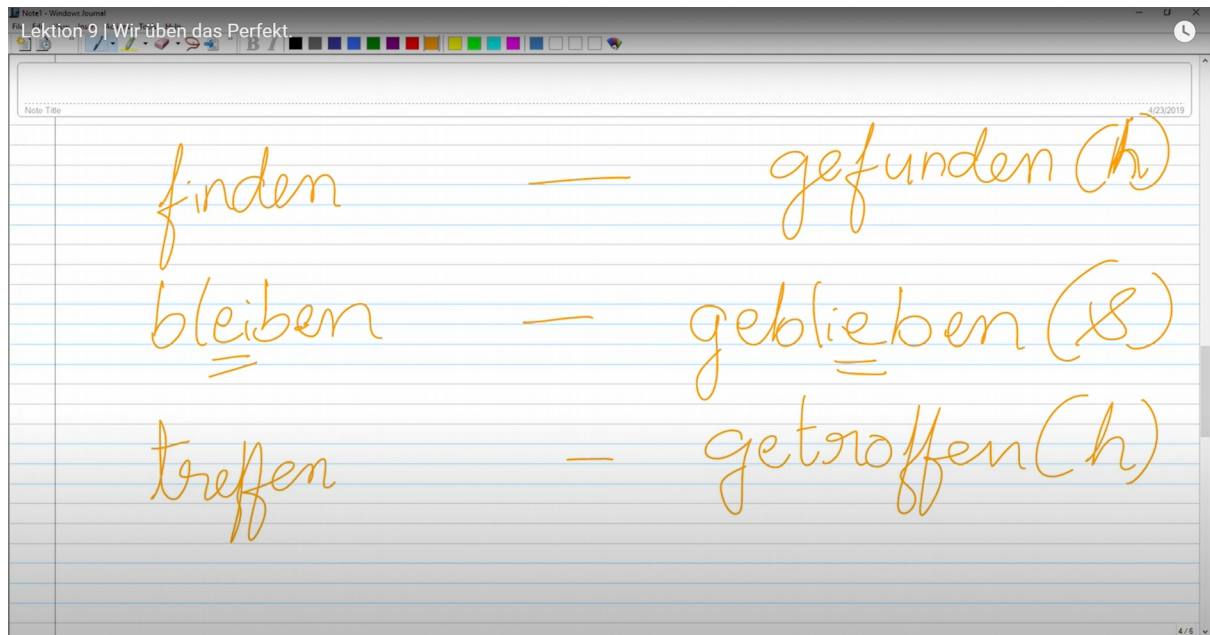 Note1 - Windows Journal
Lektion 9 | Wir üben das Perfekt.
B I
Note Title
4/23/2019
finden — gefunden (h)
bleiben — geblieben (s)
treffen — getroffen (h)
4 / 6